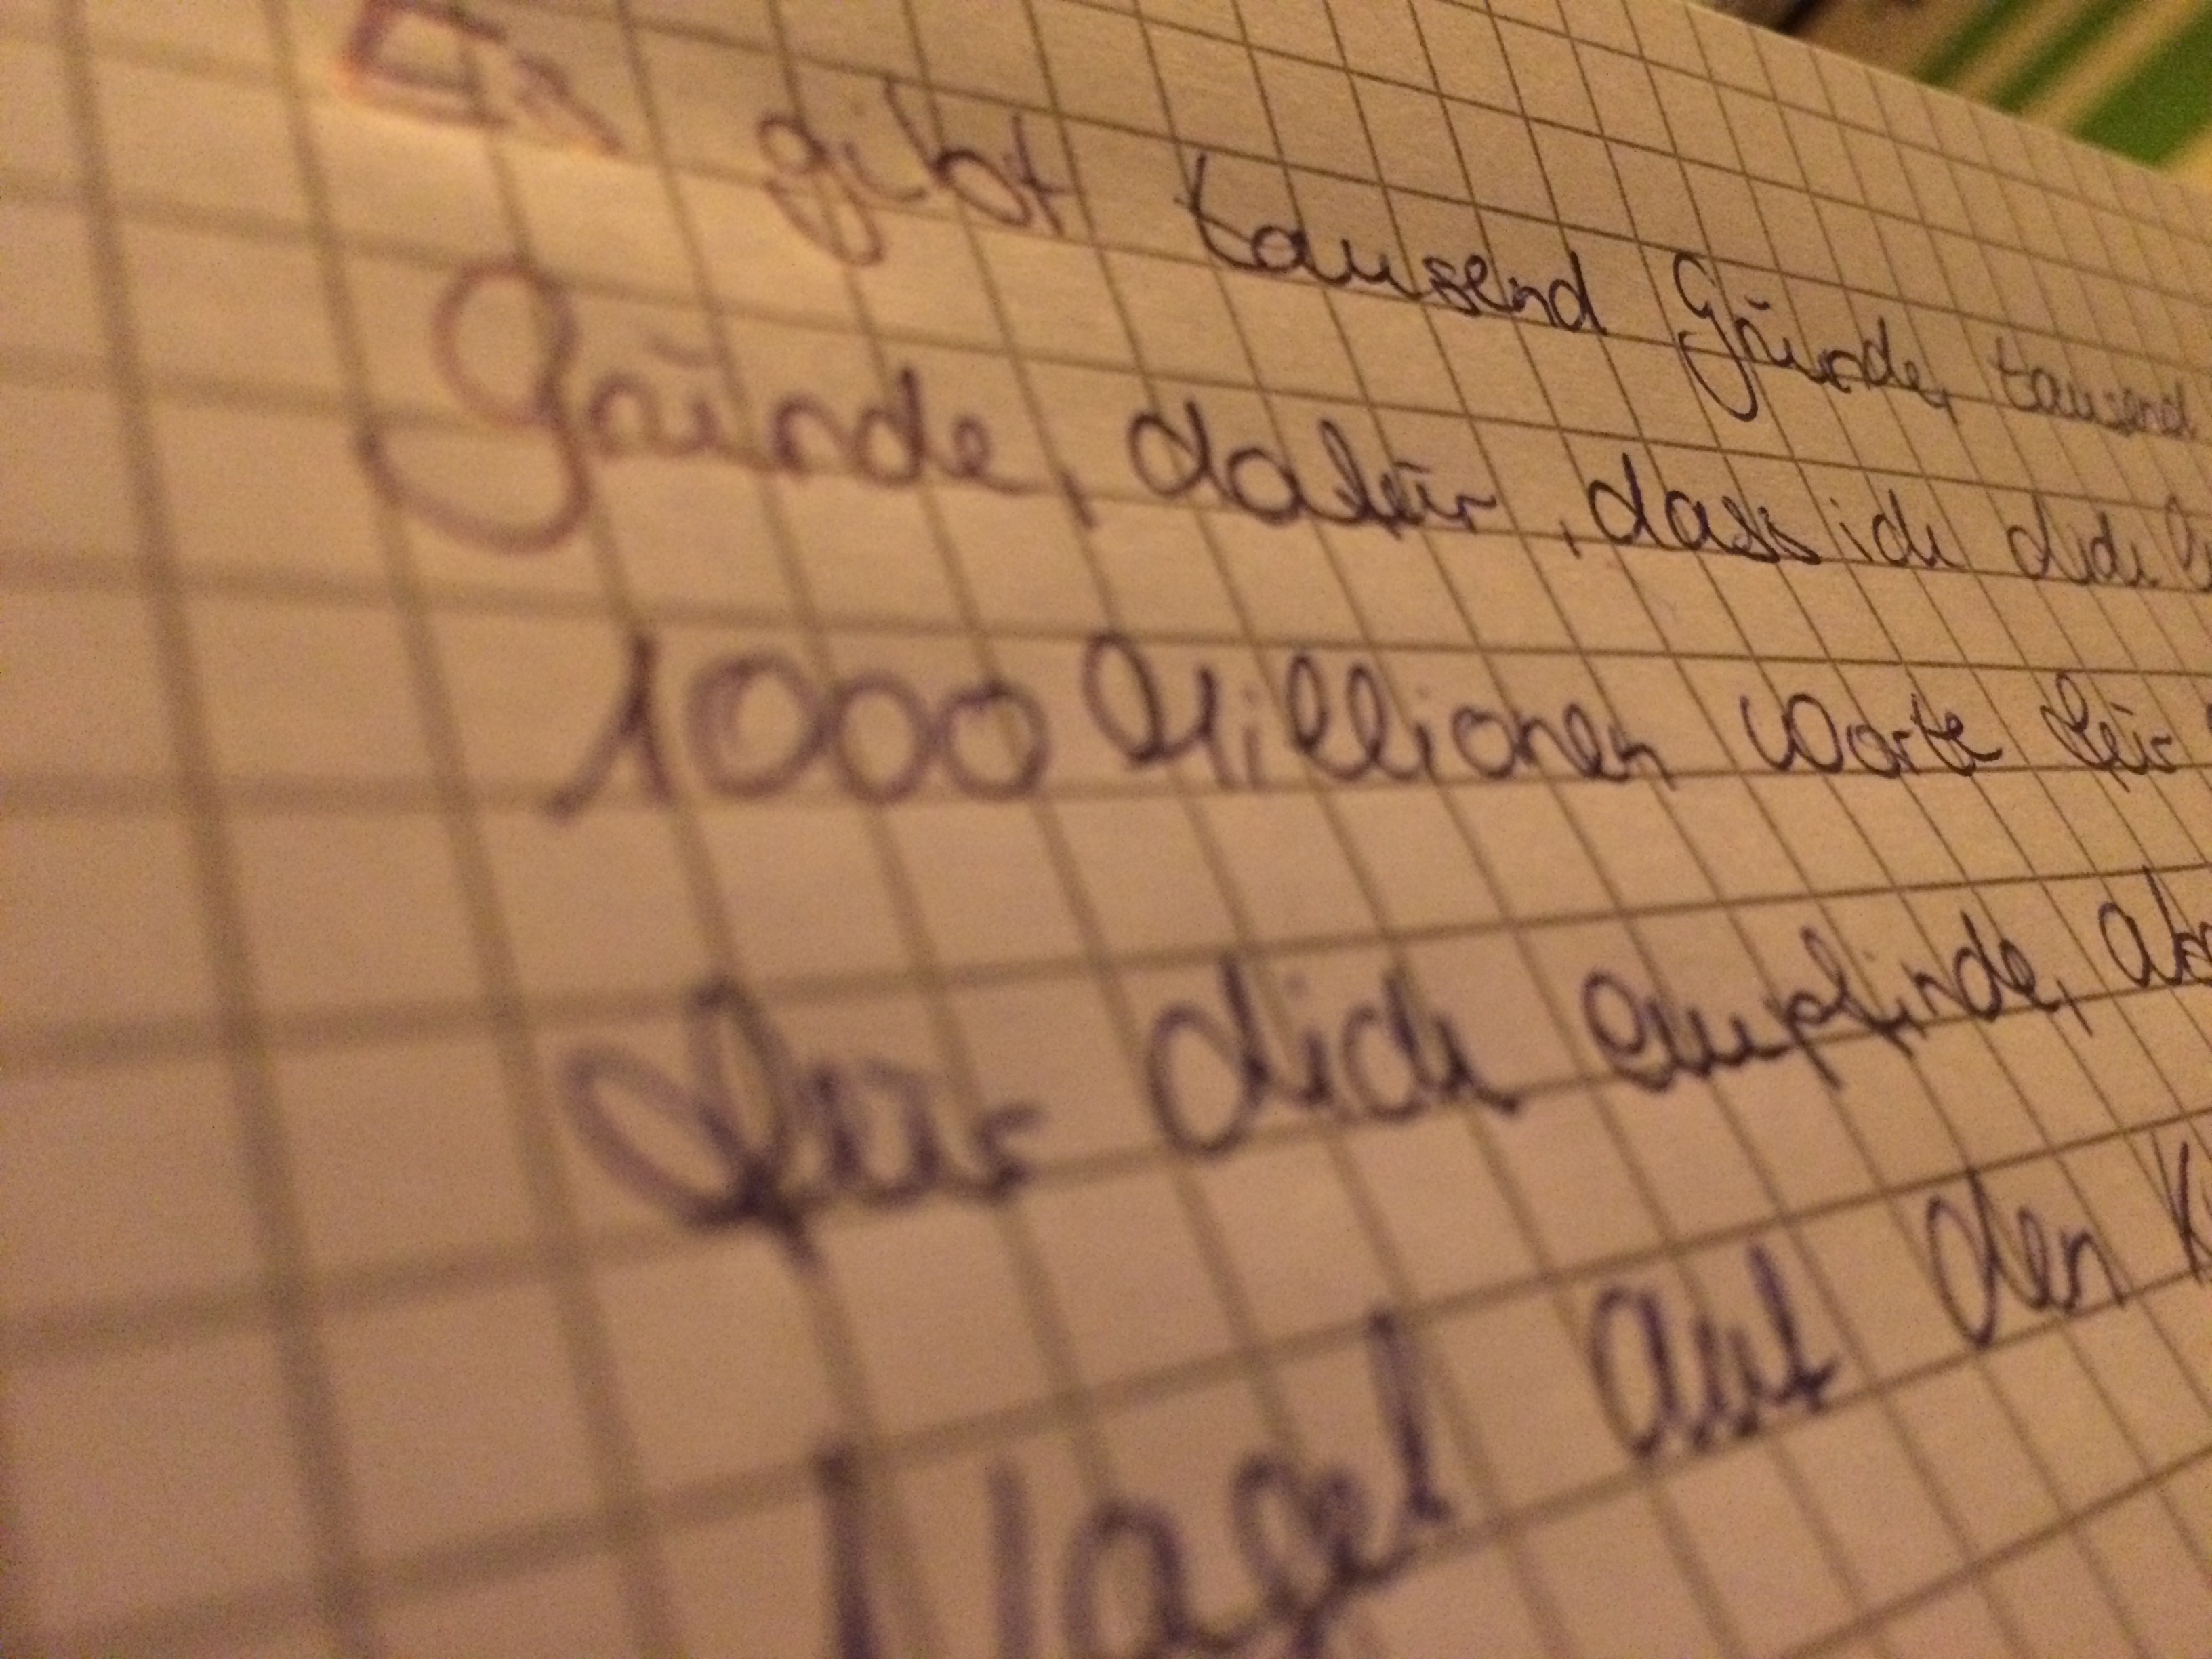 Es gibt tausend Gründe, tausend
Gründe, dafür, dass ich dich
1000 Millionen Worte für
für dich empfinde,
Nagel auf den